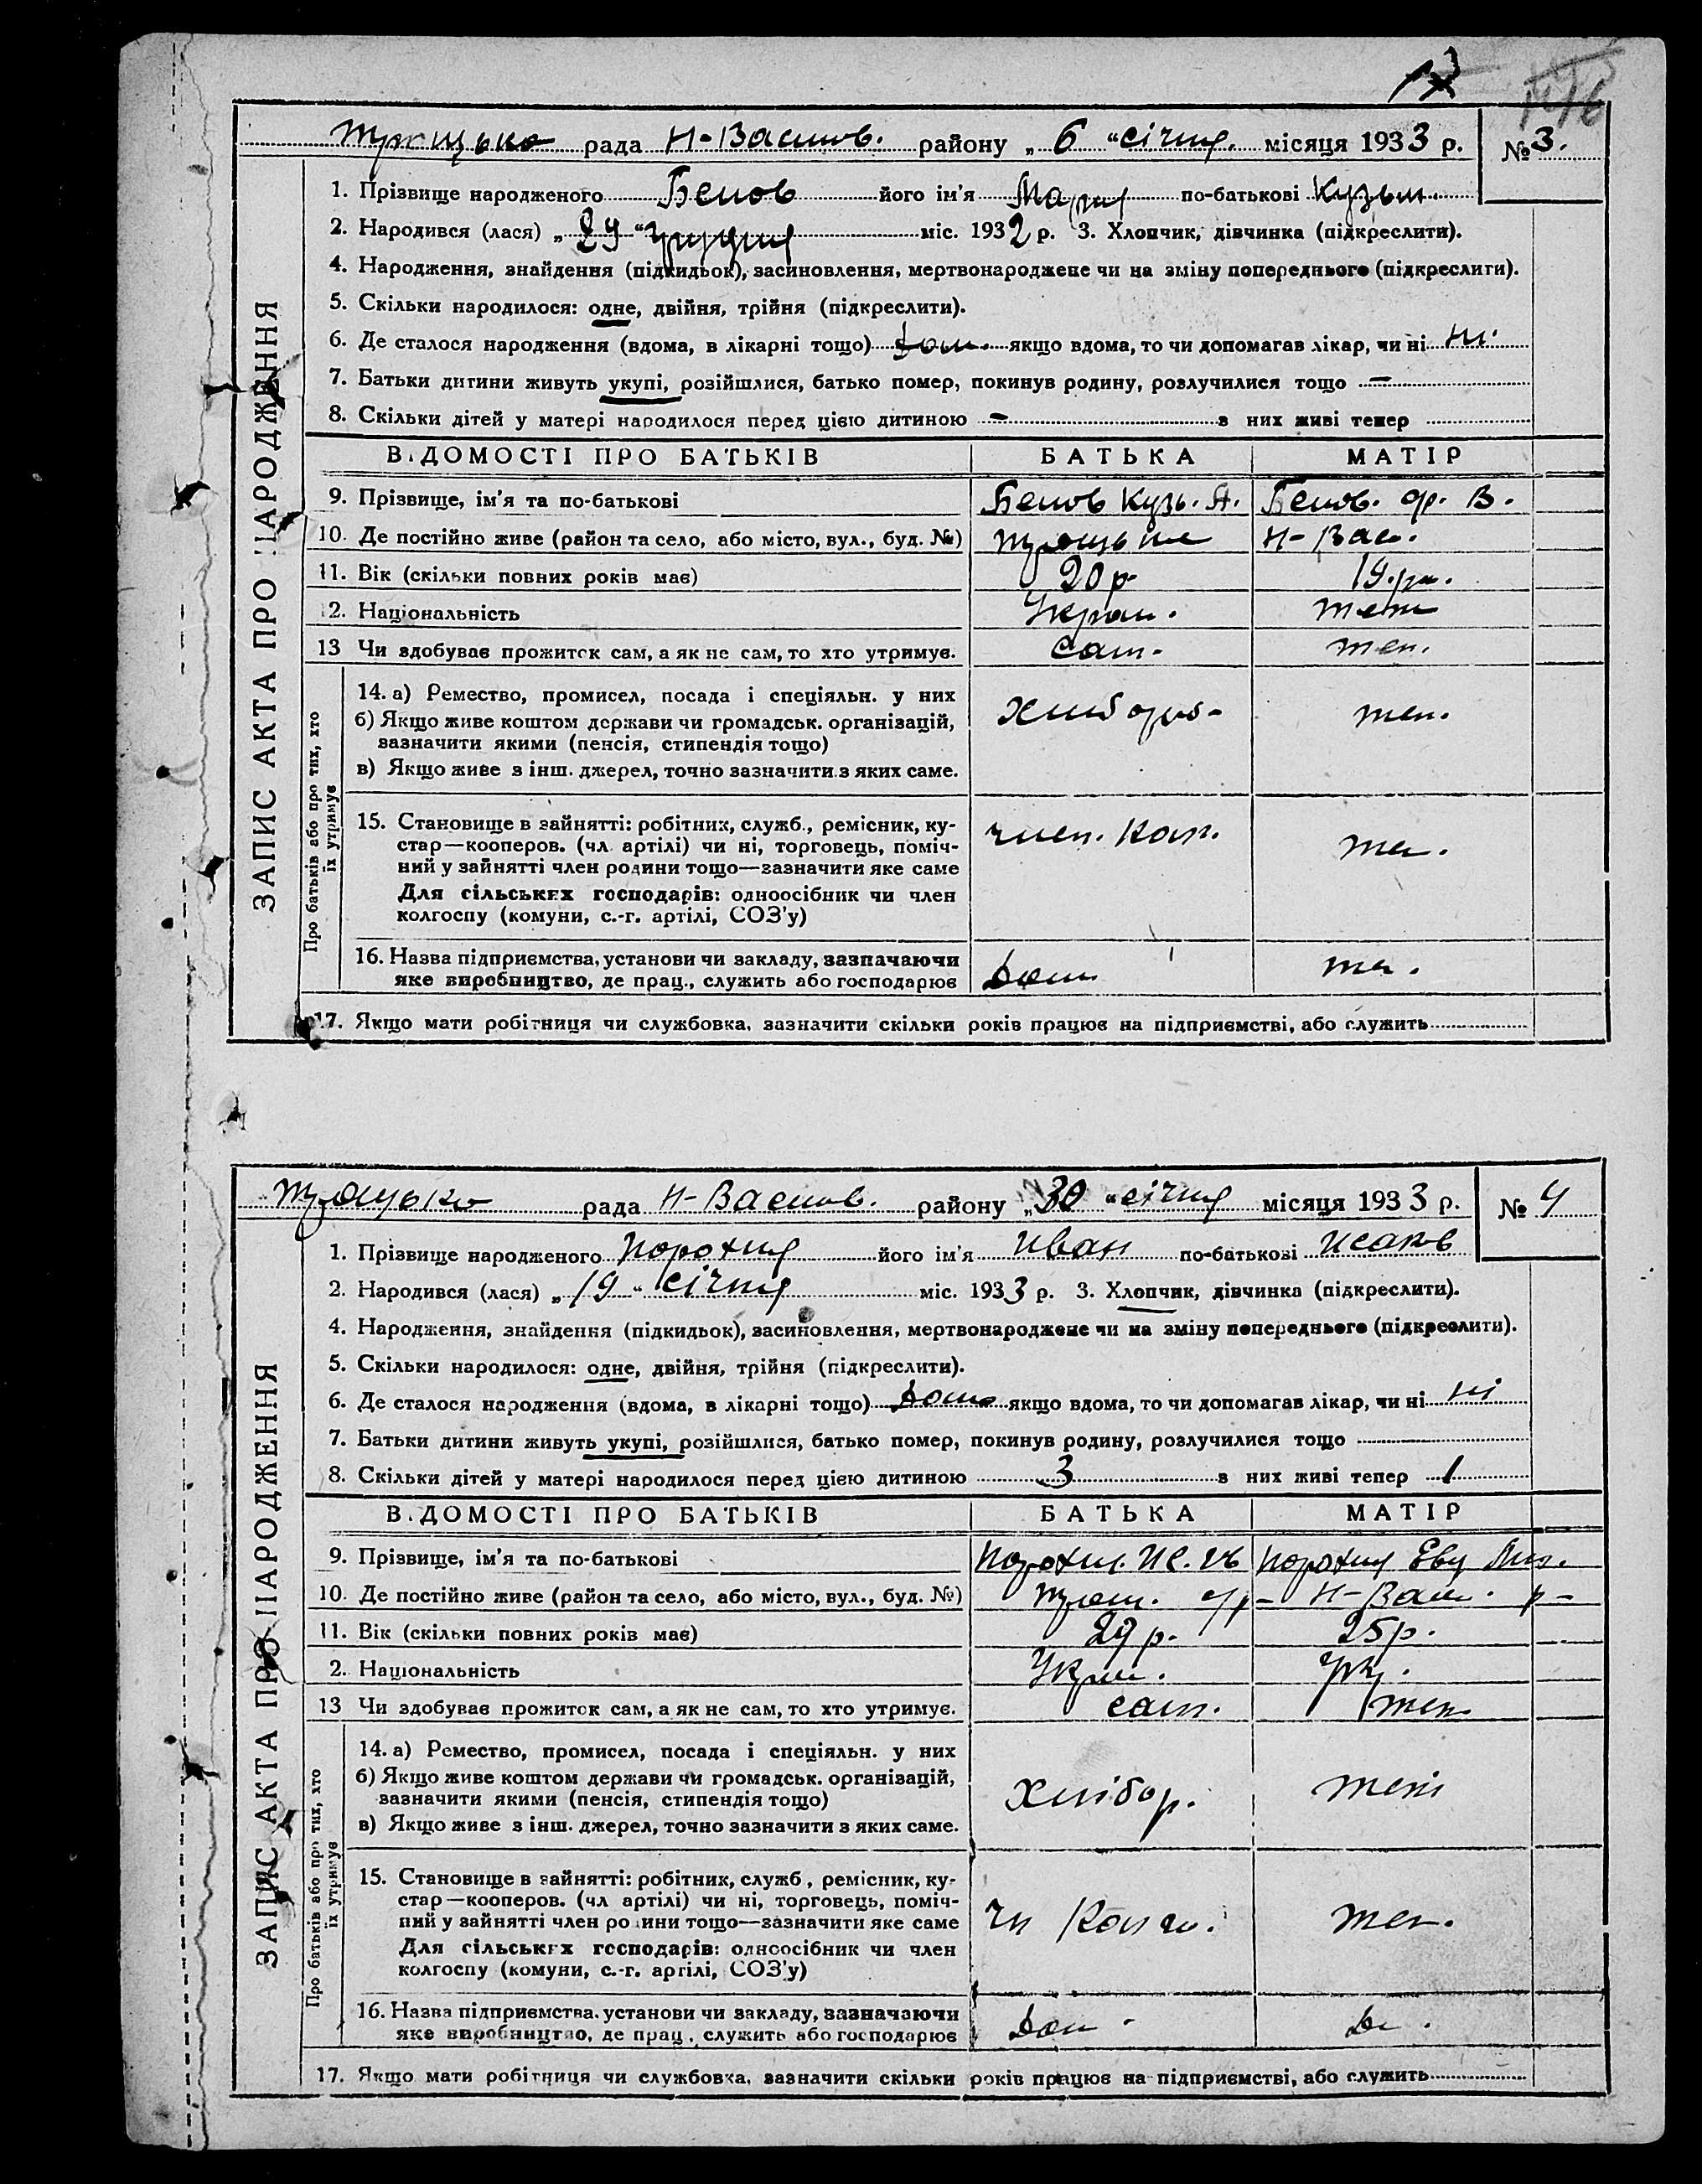 рада Н-Васил. району „ 6 “ січня місяця 1933 р. № 3.
1. Прізвище народженого Белов його ім'я Мария по-батькові Кузьм.
2. Народився (лася) „ 29 “ грудня міс. 1932 р. 3. Хлопчик, дівчинка (підкреслити).
4. Народження, знайдення (підкидьок), засиновлення, мертвонароджене чи на зміну попереднього (підкреслити).
5. Скільки народилося: одне, двійня, трійня (підкреслити).
6. Де сталося народження (вдома, в лікарні тощо) дом. якщо вдома, то чи допомагав лікар, чи ні ні.
7. Батьки дитини живуть укупі, розійшлися, батько помер, покинув родину, розлучилися тощо —
8. Скільки дітей у матері народилося перед цією дитиною — з них живі тепер
ЗАПИС АКТА ПРО НАРОДЖЕННЯ
ВІДОМОСТІ ПРО БАТЬКІВ БАТЬКА МАТІР
9. Прізвище, ім'я та по-батькові Белов Кузь. А. Белов. В.
10. Де постійно живе (район та село, або місто, вул., буд. №) Н-Вас.
11. Вік (скільки повних років має) 20 р. 19.р.
12. Національність Украи. теж
13 Чи здобуває прожиток сам, а як не сам, то хто утримує. сам. теж.
Про батьків або про тих, хто їх утримує
14. а) Ремество, промисел, посада і спеціяльн. у них хлібороб теж.
б) Якщо живе коштом держави чи громадськ. організацій,
зазначити якими (пенсія, стипендія тощо)
в) Якщо живе з інш. джерел, точно зазначити з яких саме.
15. Становище в зайнятті: робітник, служб., ремісник, ку-
стар—кооперов. (чл. артілі) чи ні, торговець, поміч- член. Кол. теж.
ний у зайнятті член родини тощо—зазначити яке саме
Для сільських господарів: одноосібник чи член
колгоспу (комуни, с.-г. артілі, СОЗ'у)
16. Назва підприємства, установи чи закладу, зазначаючи
яке виробництво, де прац., служить або господарює Дом. теж.
17. Якщо мати робітниця чи службовка, зазначити скільки років працює на підприємстві, або служить
рада Н-Васил. району „ 30 “ січня місяця 1933 р. № 4
1. Прізвище народженого Порохня його ім'я Иван по-батькові Исаков
2. Народився (лася) „ 19 “ січня міс. 1933 р. 3. Хлопчик, дівчинка (підкреслити).
4. Народження, знайдення (підкидьок), засиновлення, мертвонароджене чи на зміну попереднього (підкреслити).
5. Скільки народилося: одне, двійня, трійня (підкреслити).
6. Де сталося народження (вдома, в лікарні тощо) дома якщо вдома, то чи допомагав лікар, чи ні ні
7. Батьки дитини живуть укупі, розійшлися, батько помер, покинув родину, розлучилися тощо
8. Скільки дітей у матері народилося перед цією дитиною 3 з них живі тепер 1
ЗАПИС АКТА ПРО НАРОДЖЕННЯ
ВІДОМОСТІ ПРО БАТЬКІВ БАТЬКА МАТІР
9. Прізвище, ім'я та по-батькові Порохня Ис. Порохня Ева
10. Де постійно живе (район та село, або місто, вул., буд. №) Н-Васи. р-
11. Вік (скільки повних років має) 29 р. 25 р.
2. Національність Украи. Укр.
13 Чи здобуває прожиток сам, а як не сам, то хто утримує. сам. теж.
Про батьків або про тих, хто їх утримує
14. а) Ремество, промисел, посада і спеціяльн. у них
б) Якщо живе коштом держави чи громадськ. організацій, хлібор. теж
зазначити якими (пенсія, стипендія тощо)
в) Якщо живе з інш. джерел, точно зазначити з яких саме.
15. Становище в зайнятті: робітник, служб, ремісник, ку-
стар—кооперов. (чл артілі) чи ні, торговець, поміч-
ний у зайнятті член родини тощо—зазначити яке саме чл Колг. теж.
Для сільських господарів: одноосібник чи член
колгоспу (комуни, с.-г. артілі, СОЗ'у)
16. Назва підприємства, установи чи закладу, зазначаючи
яке виробництво, де прац., служить або господарює Дом. До.
17. Якщо мати робітниця чи службовка, зазначити скільки років працює на підприємстві, або служить